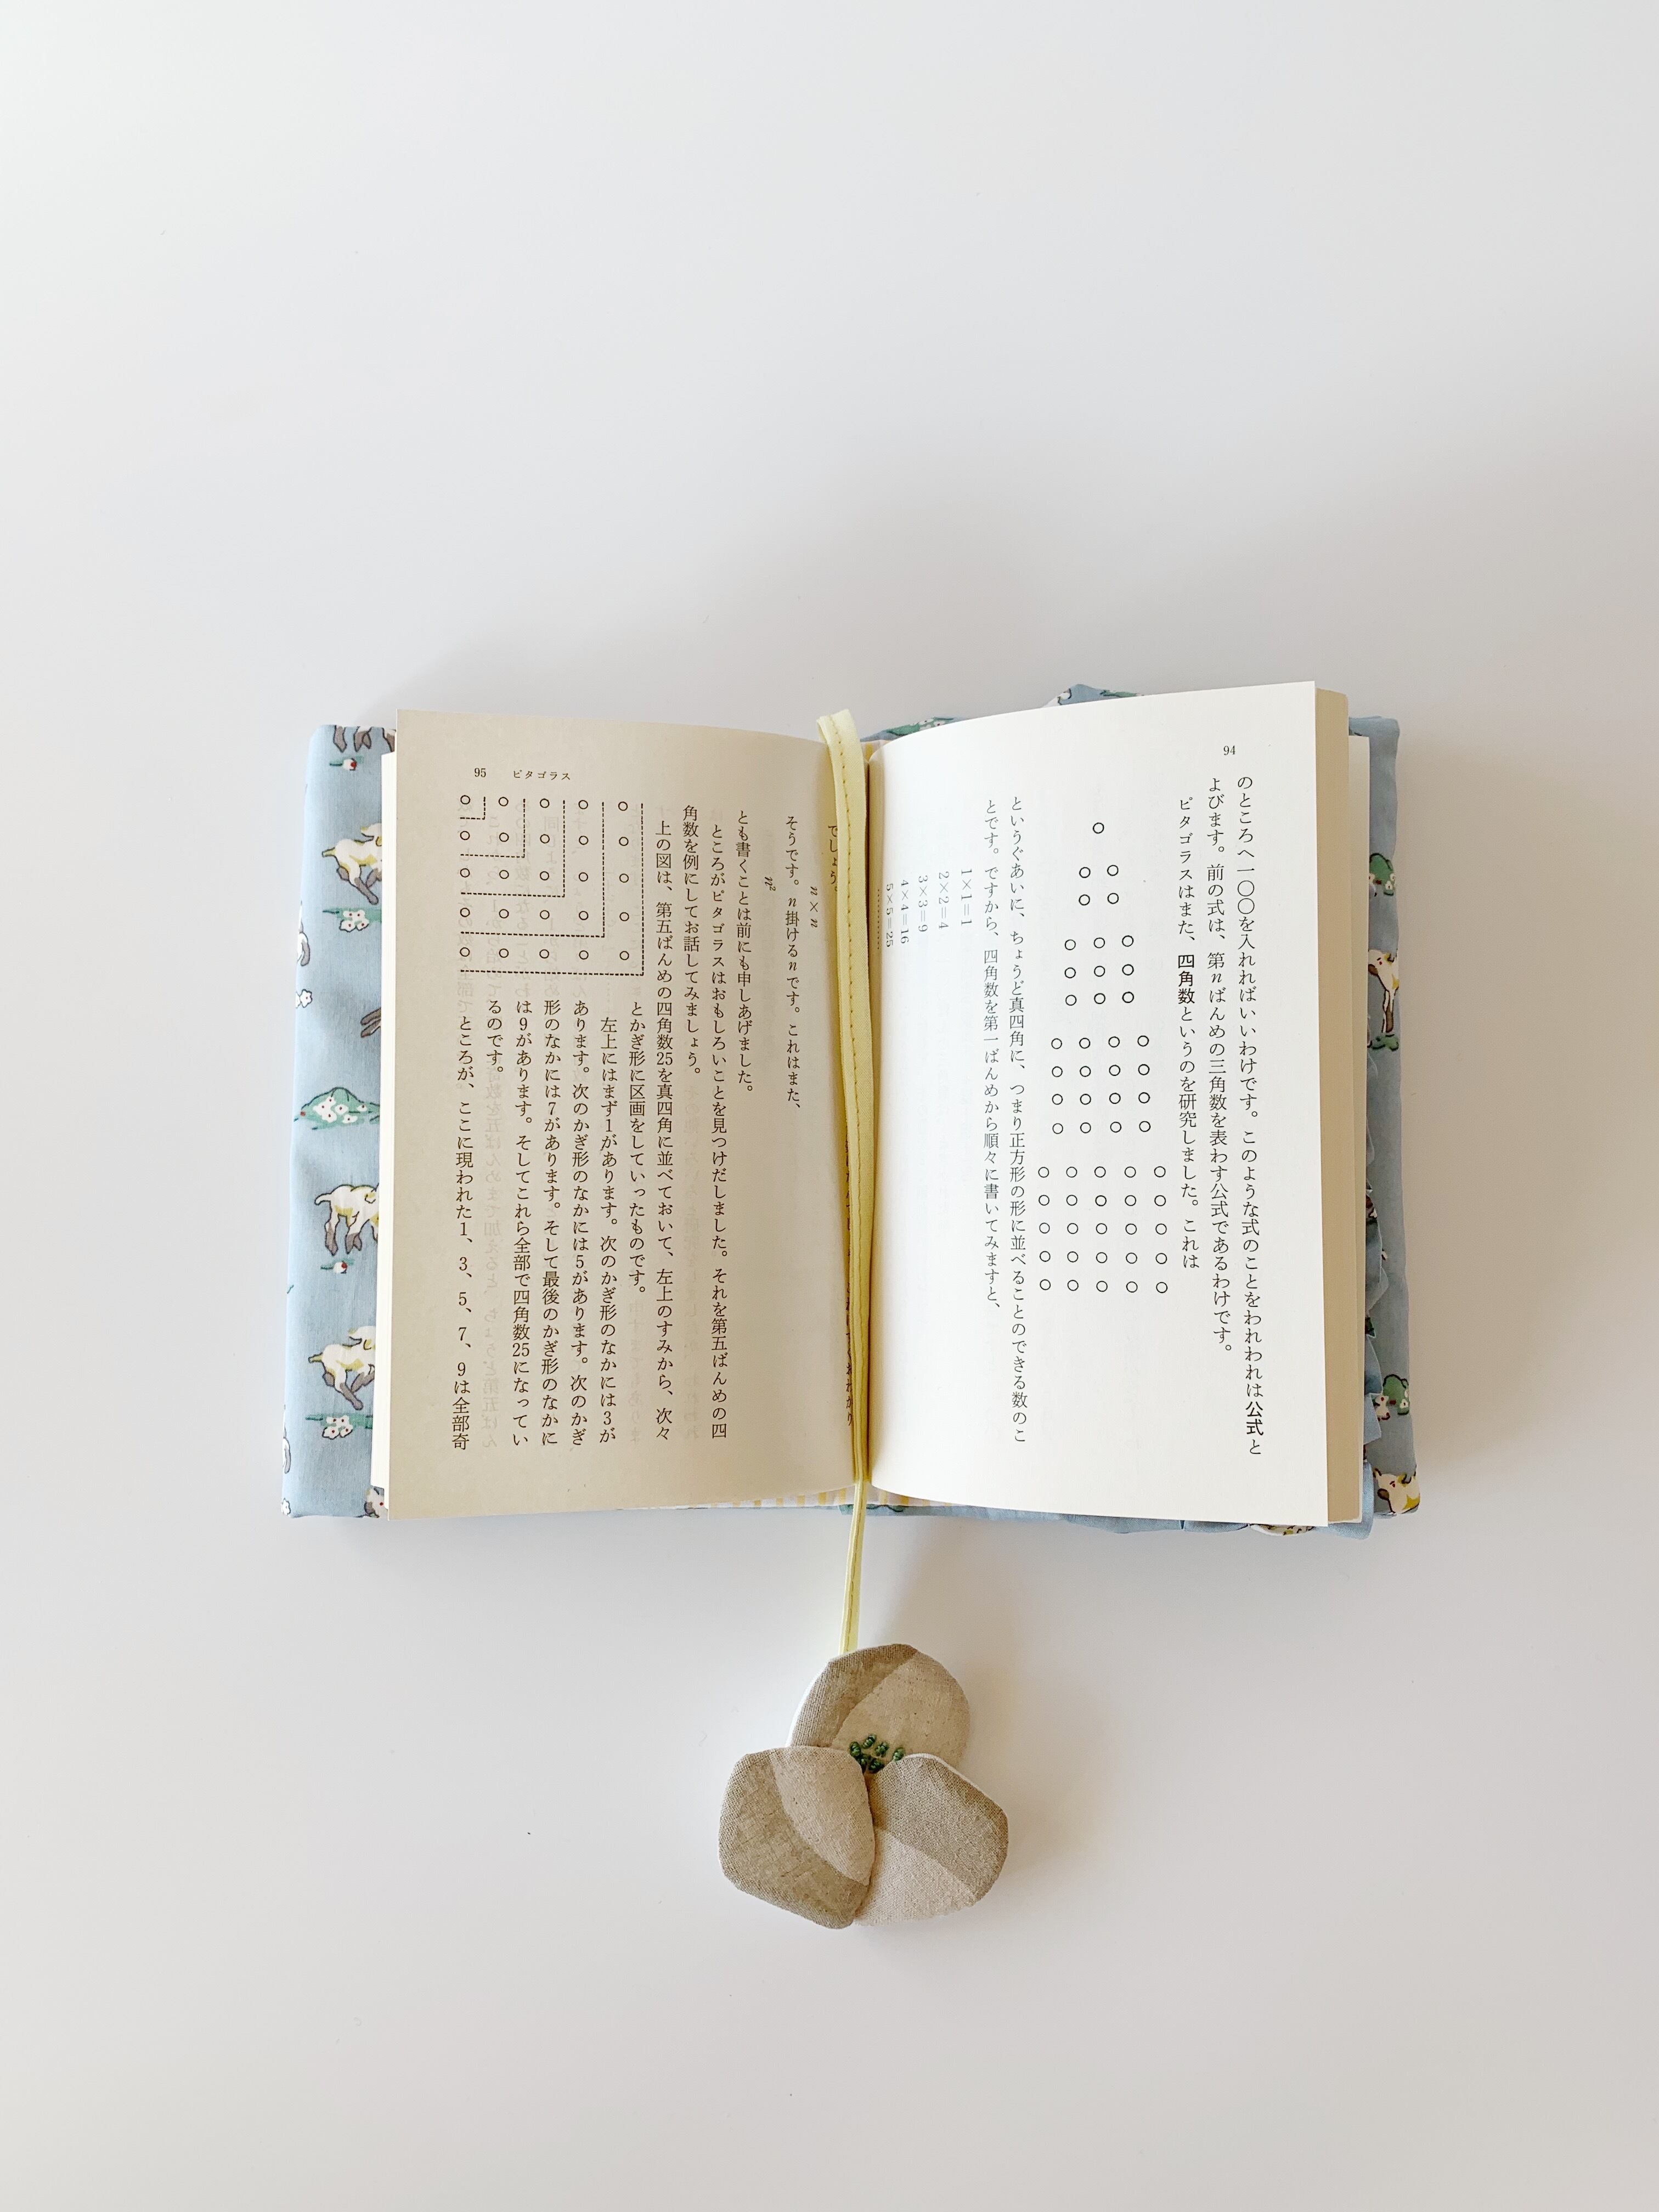 94
のところへ一〇〇を入れればいいわけです。このような式のことをわれわれは公式と
よびます。前の式は、第nばんめの三角数を表わす公式であるわけです。
ピタゴラスはまた、四角数というのを研究しました。これは
というぐあいに、ちょうど真四角に、つまり正方形の形に並べることのできる数のこ
とです。ですから、四角数を第一ばんめから順々に書いてみますと、
1×1=1
2×2=4
3×3=9
4×4=16
5×5=25
95 ピタゴラス
でしょう。
n×n
そうです。n掛けるnです。これはまた、
n²
とも書くことは前にも申しあげました。
ところがピタゴラスはおもしろいことを見つけだしました。それを第五ばんめの四
角数を例にしてお話してみましょう。
上の図は、第五ばんめの四角数25を真四角に並べておいて、左上のすみから、次々
とかぎ形に区画をしていったものです。
左上にはまず1があります。次のかぎ形のなかには3が
あります。次のかぎ形のなかには5があります。次のかぎ
形のなかには7があります。そして最後のかぎ形のなかに
は9があります。そしてこれら全部で四角数25になってい
るのです。
ところが、ここに現われた1、3、5、7、9は全部奇